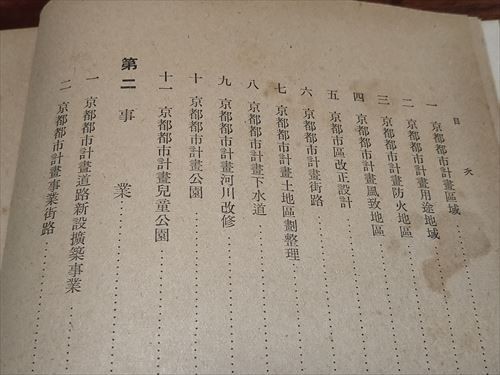 目次
一 京都都市計畫區域
二 京都都市計畫用途地域
三 京都都市計畫防火地區
四 京都都市計畫風致地區
五 京都市區改正設計
六 京都都市計畫街路
七 京都都市計畫土地區劃整理
八 京都都市計畫下水道
九 京都都市計畫河川改修
十 京都都市計畫公園
十一 京都都市計畫兒童公園
第二 事業
一 京都都市計畫道路新設擴築事業
二 京都都市計畫事業街路